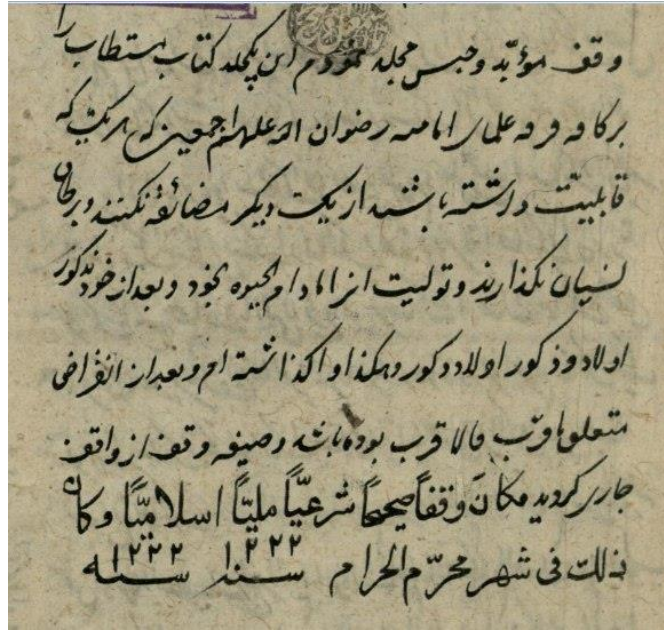 وقف مؤبّد وحبس مخلد نمودم این یکجلد کتاب مستطاب را
بر کافه فرقه علمای امامیه رضوان الله علیهم اجمعین که هر یک که
قابلیّت داشته باشند از یک دیگر مضائقه نکنند و بر طاق
نسیان نگذارند و تولیت انرا مادام الحیوه بخود و بعد از خود بذکور
اولاد و ذکور اولاد ذکور وهکذا واگذاشته ام و بعد از انقراض
متعلق باقرب فالاقرب بوده باشد و صیغه وقف از واقف
جاری گردید فکان وقفاً صحیحاً شرعیّاً ملیّاً اسلامیّاً وکان
ذلک فی شهر محرّم الحرام سنه ۱۲۲۲ سنه ۱۲۲۲